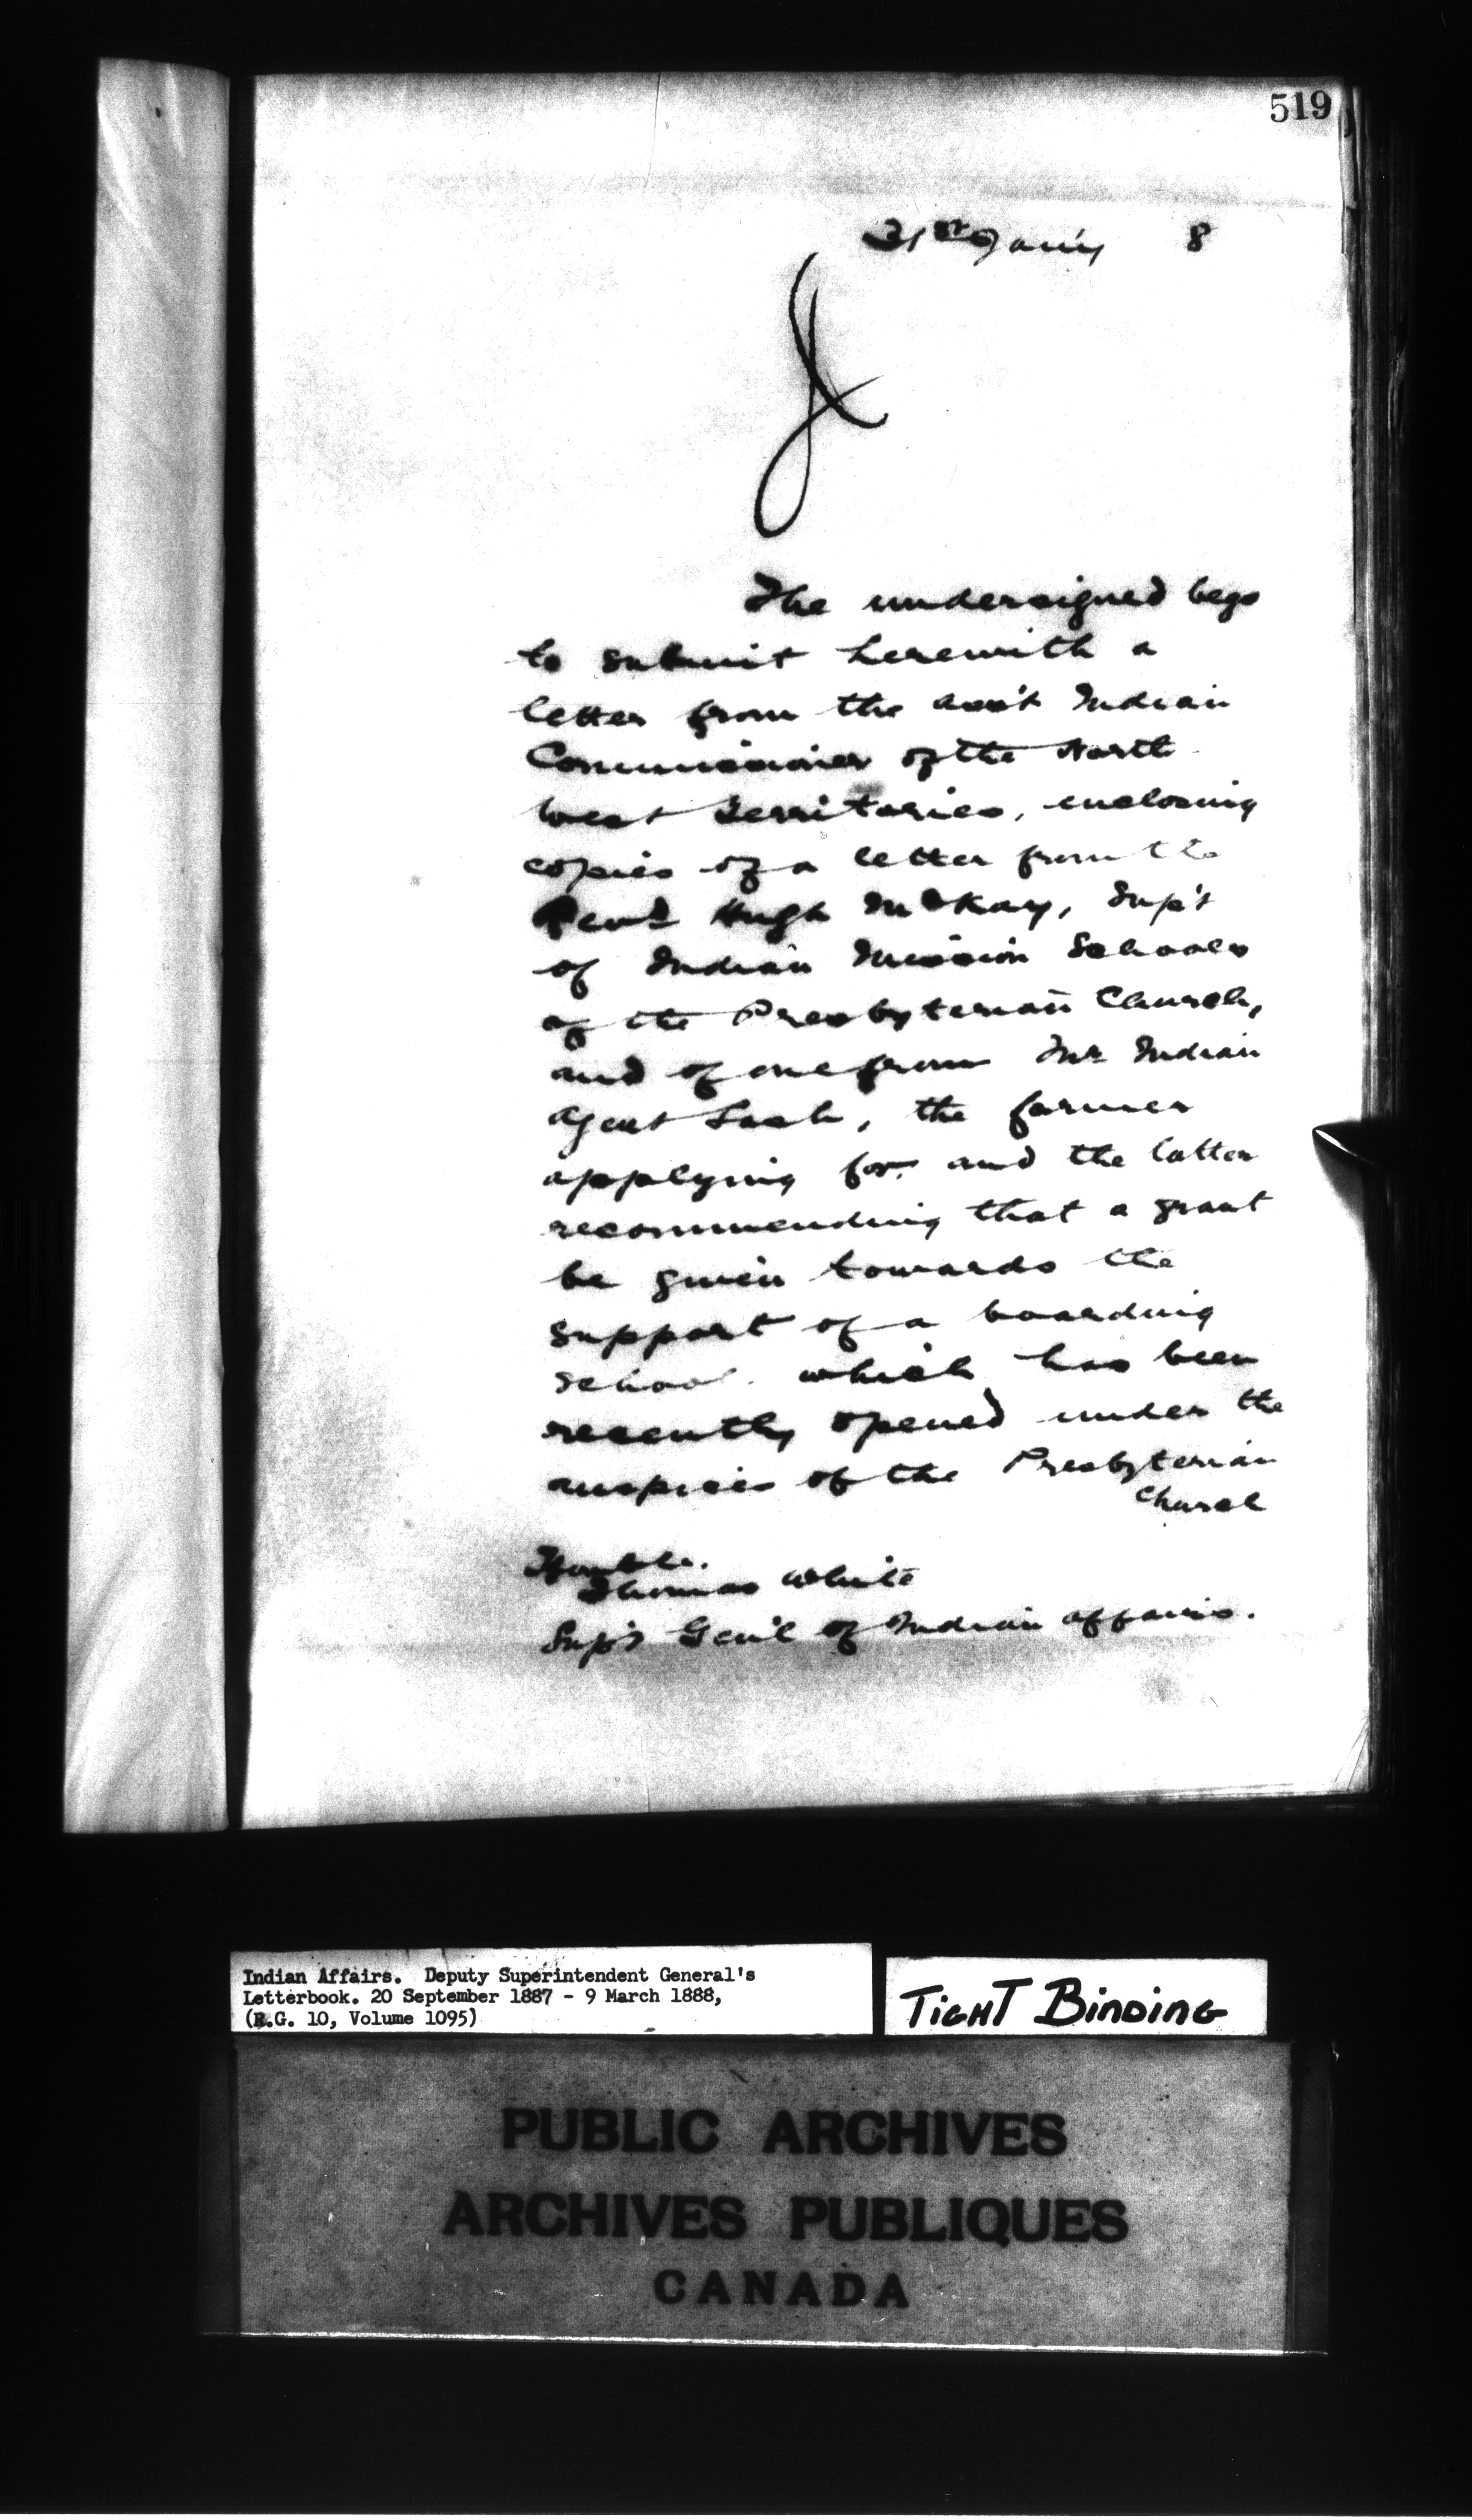 519
31st Jan'y 8
The undersigned begs
to submit herewith a
letter from the Ass't Indian
Commissioner of the North
West Territories, enclosing
copies of a letter from the
Revd Hugh McKay, Sup't
of Indian Mission Schools
of the Presbyterian Church,
and of one from Mr Indian
Agent Lash, the former
applying for and the latter
recommending that a grant
be given towards the
support of a boarding
school which has been
recently opened under the
auspices of the Presbyterian
Church
Honble.
Thomas White
Sup't Gen'l of Indian Affairs.
Indian Affairs. Deputy Superintendent General's
Letterbook. 20 September 1887 - 9 March 1888,
(R.G. 10, Volume 1095)
TIGHT BINDING
PUBLIC ARCHIVES
ARCHIVES PUBLIQUES
CANADA